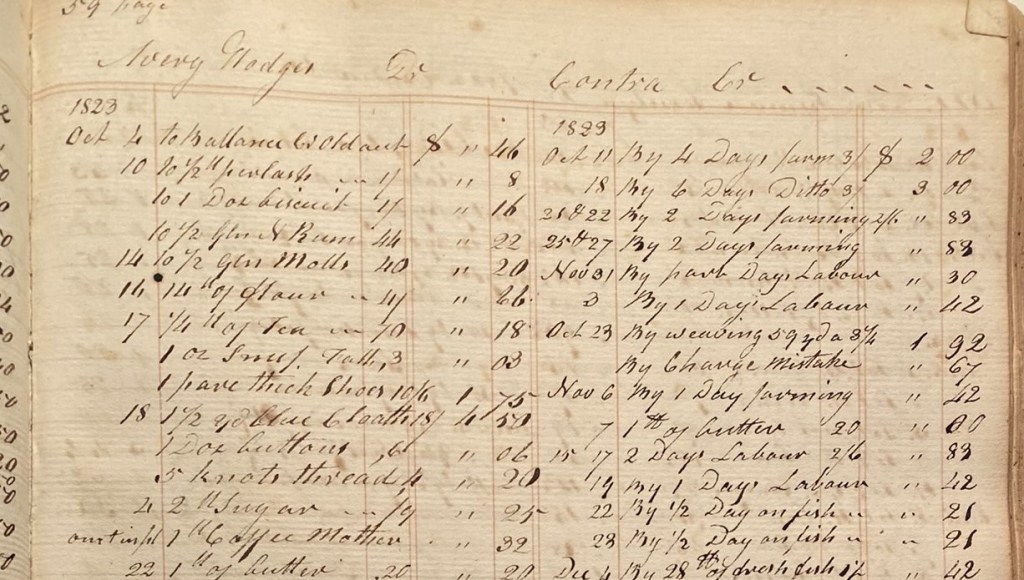 59 page
Avery Hodges Dr
1823
Oct 4 to Ballance of old act $ " 46
10 to 1/2 lb perlash - 1/ " 8
to 1 Doz biscuit 1/ " 16
to 1/2 Gln N Rum 44 " 22
14 to 1/2 Gln Molls 40 " 20
16 14 lb of flour - 4/ " 66
17 1/4 lb of Tea - 70 " 18
1 oz Snuf 3 " 03
1 pare thick Shoes 10/6 1 75
18 1 1/2 yd blue Cloath 18/ 4 50
1 Doz buttons ,6 " 06
5 knots thread, 4 " 20
2 lb Sugar - /9 " 25
1 lb Coffee Mother " 32
22 1 lb of butter 20 " 20
Contra Cr
1823
Oct 11 By 4 Days farm 3/ $ 2 00
18 By 6 Days Ditto 3/ 3 00
21 & 22 By 2 Days farming 2/6 " 83
25th 27 By 2 Days farming " 83
Nov 31 By part Days Labour " 30
3 By 1 Days Labour " 42
Oct 23 By weaving 59 yd a 3 1/4 1 92
By Charge Mistake " 67
Nov 6 By 1 Day farming " 42
7 1 lb of butter 20 "
15 17 2 Days Labour 2/6 " 83
19 By 1 Days Labour " 42
22 By 1/2 Day on fish " " 21
23 By 1/2 Day on fish " " 21
Dec 4 By 28 lb of fresh fish " 42